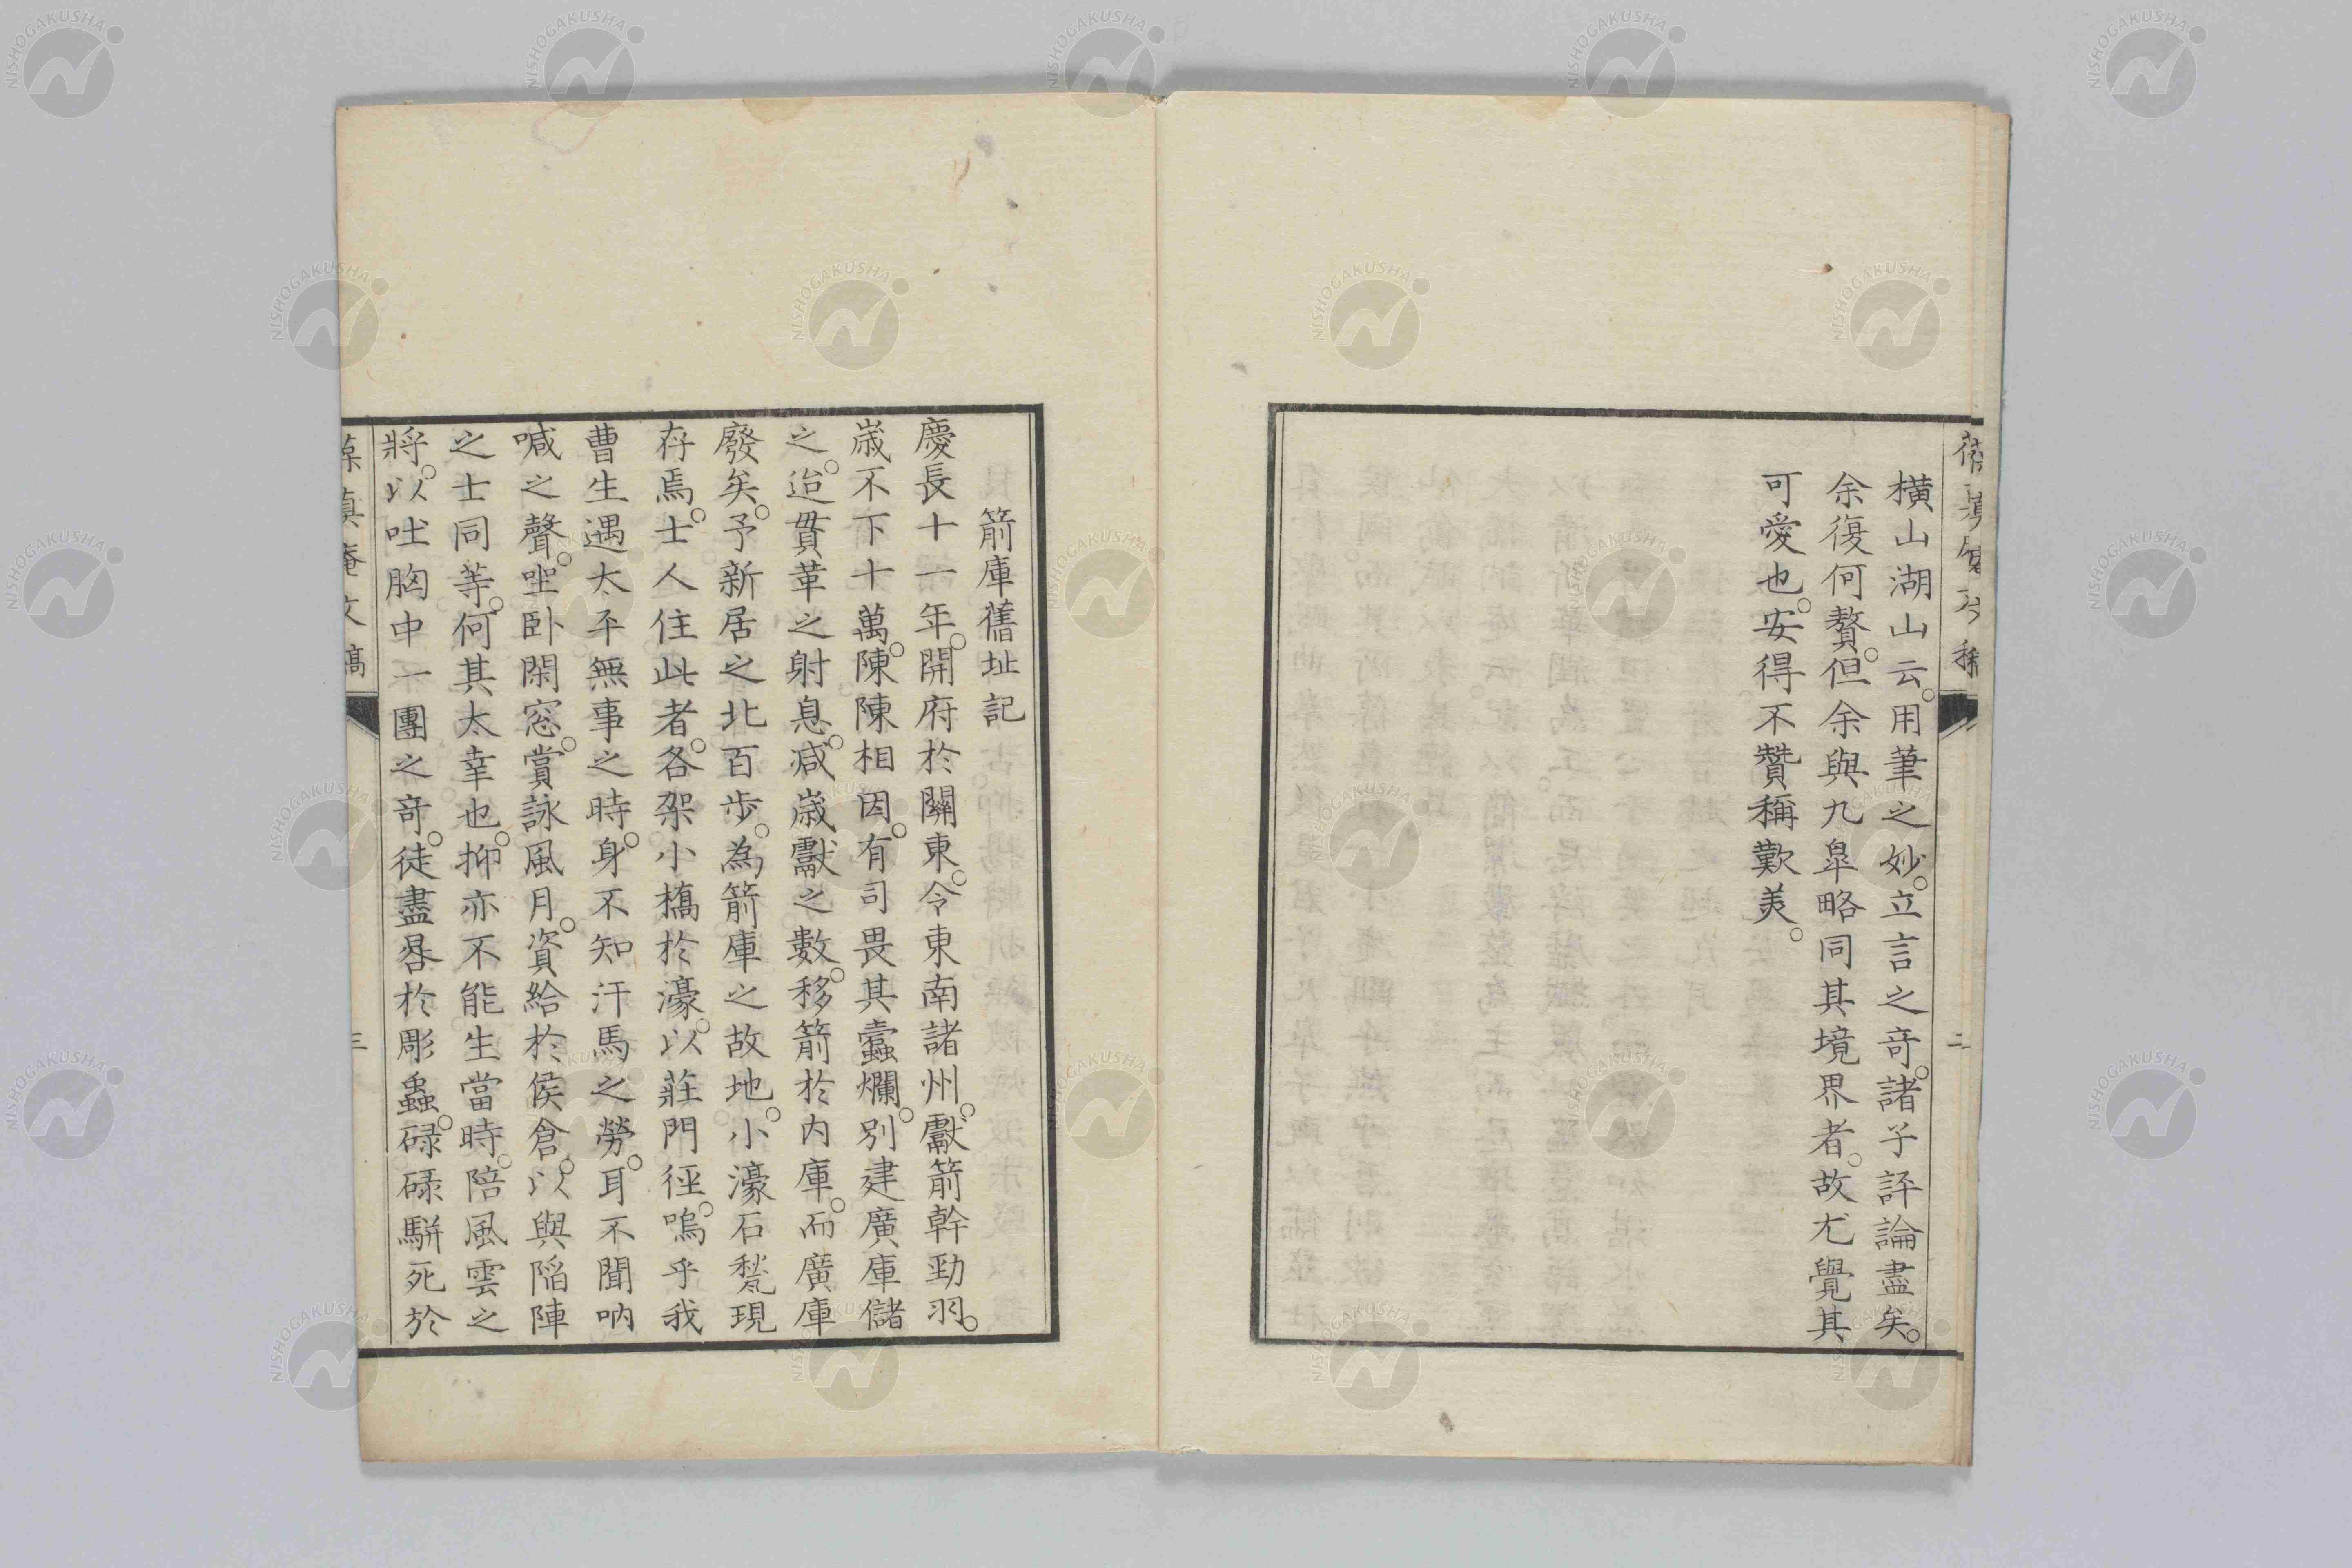 橫山湖山云。用筆之妙。立言之奇。諸子評論盡矣。
余復何贅。但余與九皐略同其境界者。故尤覺其
可愛也。安得不贊稱歎美。
二
箭庫舊址記
慶長十一年。開府於關東。令東南諸州。獻箭幹勁羽。
歲不下十萬。陳陳相因。有司畏其蠹爛。別建廣庫儲
之。迨貫革之射息。減歲獻之數。移箭於内庫。而廣庫
廢矣。予新居之北百步。為箭庫之故地。小濠石甃現
存焉。士人住此者。各架小橋於濠。以莊門徑。嗚乎我
曹生遇太平無事之時。身不知汗馬之勞。耳不聞吶
喊之聲。坐臥閑窓。賞詠風月。資給於侯倉。以與陷陣
之士同等。何其太幸也。抑亦不能生當時。陪風雲之
將。以吐胸中一團之奇。徒盡醬於彫蟲。碌碌駢死於
葆真庵文稿
三
NISHOGAKUSHA